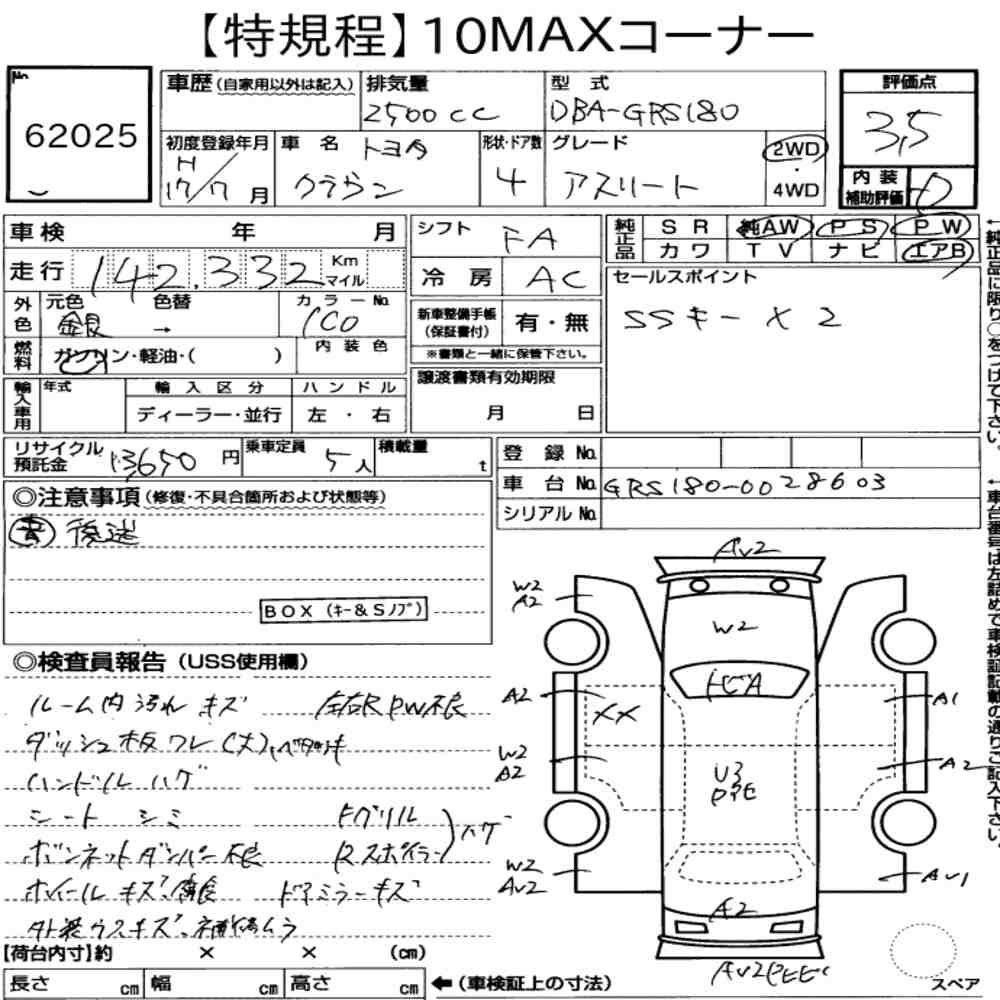 【特規程】10MAXコーナー
No.
62025
車歴(自家用以外は記入)
排気量
2500cc
型式
DBA-GRS180
評価点
3.5
初度登録年月
H
17/7月
車名
トヨタ
クラウン
形状・ドア数
4
グレード
アスリート
2WD
・
4WD
内装
補助評価
D
車検 年 月
走行 142.332 Km マイル
外色
元色
銀
色替
→
カラーNo.
1C0
燃料
ガソリン・軽油・( )
内装色
輸入車用
年式
輸入区分
ディーラー・並行
ハンドル
左・右
シフト
FA
冷房
AC
新車整備手帳
(保証書付)
有・無
※書類と一緒に保管下さい。
譲渡書類有効期限
月 日
純正品
SR 純AW PS PW
カワ TV ナビ エアB
セールスポイント
SSキー×2
←純正品に限り○をつけて下さい。
リサイクル
預託金
13650円
乗車定員
5人
積載量
t
登録No.
車台No. GRS180-0028603
シリアルNo.
←車台番号は左詰めで車検証記載の通りご記入下さい。
◎注意事項(修復・不具合箇所および状態等)
後送
BOX (キー&Sノブ)
◎検査員報告(USS使用欄)
ルーム内汚れ キズ
PW不良
ダッシュ板ワレ(大)、ベタツキ
ハンドルハゲ
シート シミ
Fグリル
ボンネットダンパー不良
Rスポイラー
ハゲ
ホイールキズ、腐食
ドアミラーキズ
外装ウスキズ、補修ムラ
【荷台内寸】約 × × (cm)
長さ cm 幅 cm 高さ cm
←(車検証上の寸法)
AV2
W2
A2
W2
トビA
A2
XX
A1
W2
A2
U3
A2
W2
AV2
AV1
A2
スペア